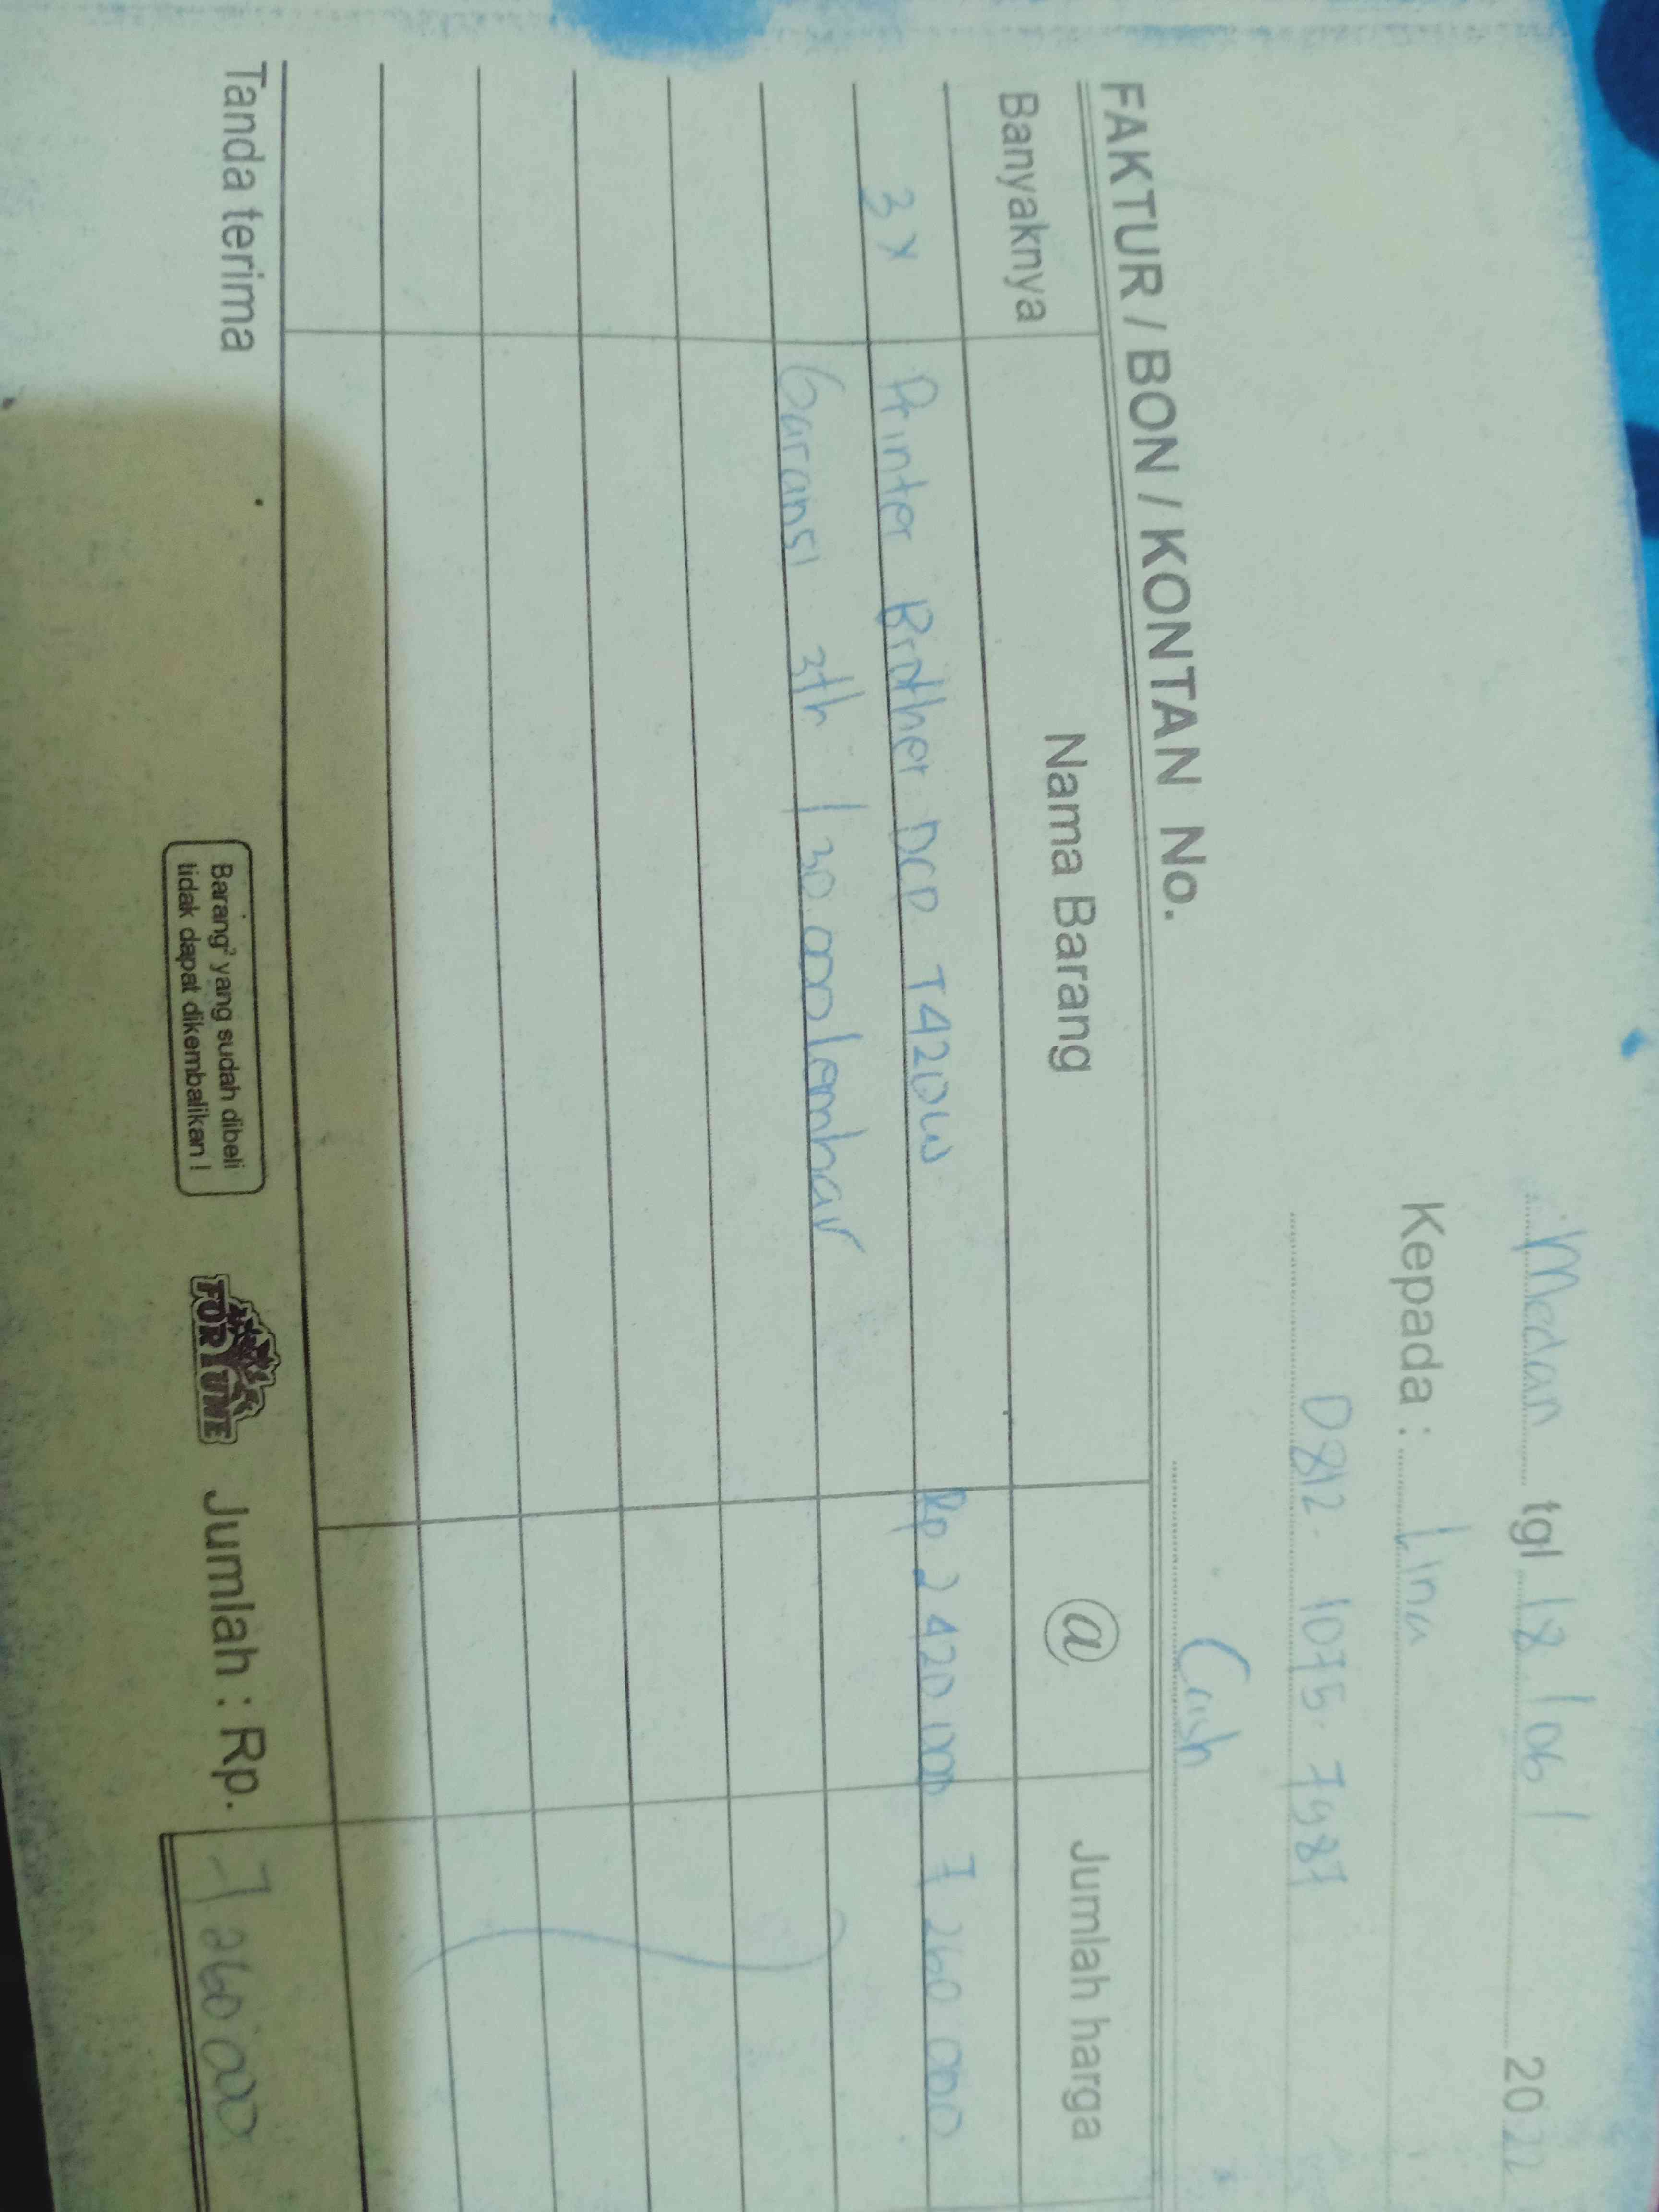 Medan tgl 18/06/ 2022
Kepada : Lina
0812-1075-7987
Cash
FAKTUR / BON / KONTAN No.
Banyaknya Nama Barang @ Jumlah harga
3x Printer Brother DCP T420W Rp 2 420 000 7 260 000
Garansi 3th / 30.000 lembar
Tanda terima
Barang² yang sudah dibeli
tidak dapat dikembalikan !
FORTUNE
Jumlah : Rp. 7 260 000